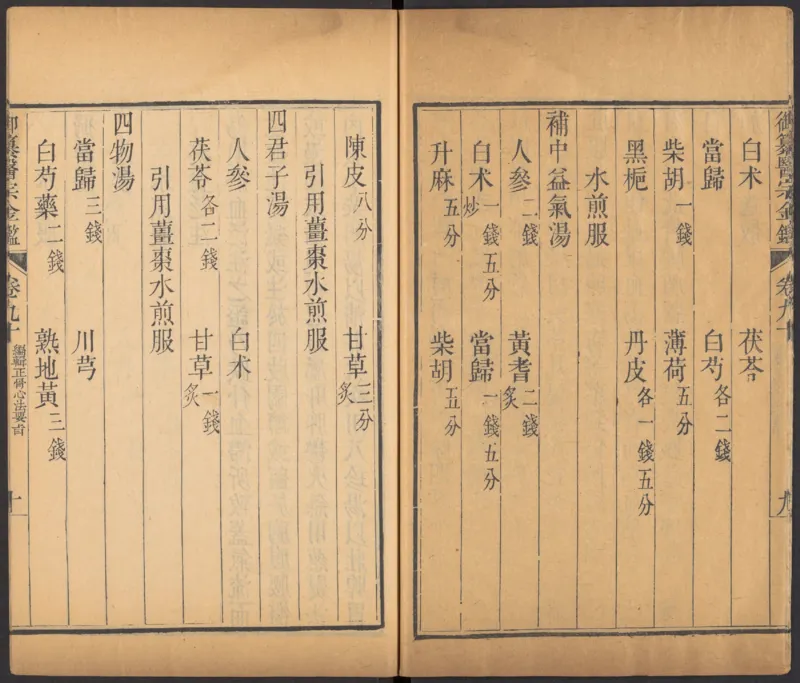 御纂醫宗金鑑 卷九十 九
白术 茯苓
當歸 白芍各二錢
柴胡一錢 薄荷五分
黑梔 丹皮各一錢五分
水煎服
補中益氣湯
人參二錢 黃耆二錢炙
白术一錢五分炒 當歸一錢五分
升麻五分 柴胡五分
陳皮八分 甘草三分炙
引用薑棗水煎服
四君子湯
人參 白术
茯苓各二錢 甘草一錢炙
引用薑棗水煎服
四物湯
當歸三錢 川芎
白芍藥二錢 熟地黃三錢
御纂醫宗金鑑 卷九十 編輯正骨心法要旨 十